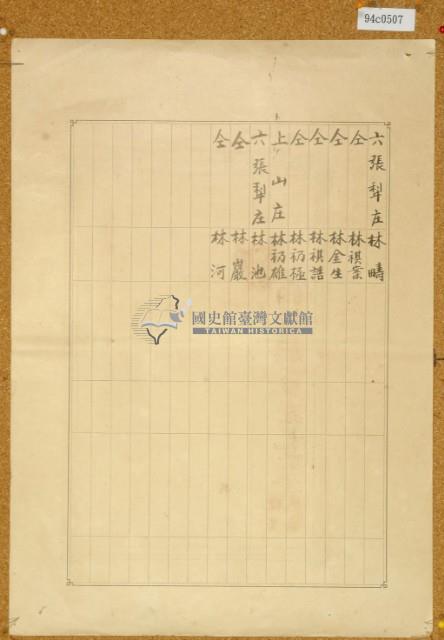 94c0507
六張犁庄 林疇
仝 林祺業
仝 林金生
仝 林祺諧
仝 林礽極
上山庄 林礽雄
六張犁庄 林池
仝 林巖
仝 林河
國史館臺灣文獻館
TAIWAN HISTORICA